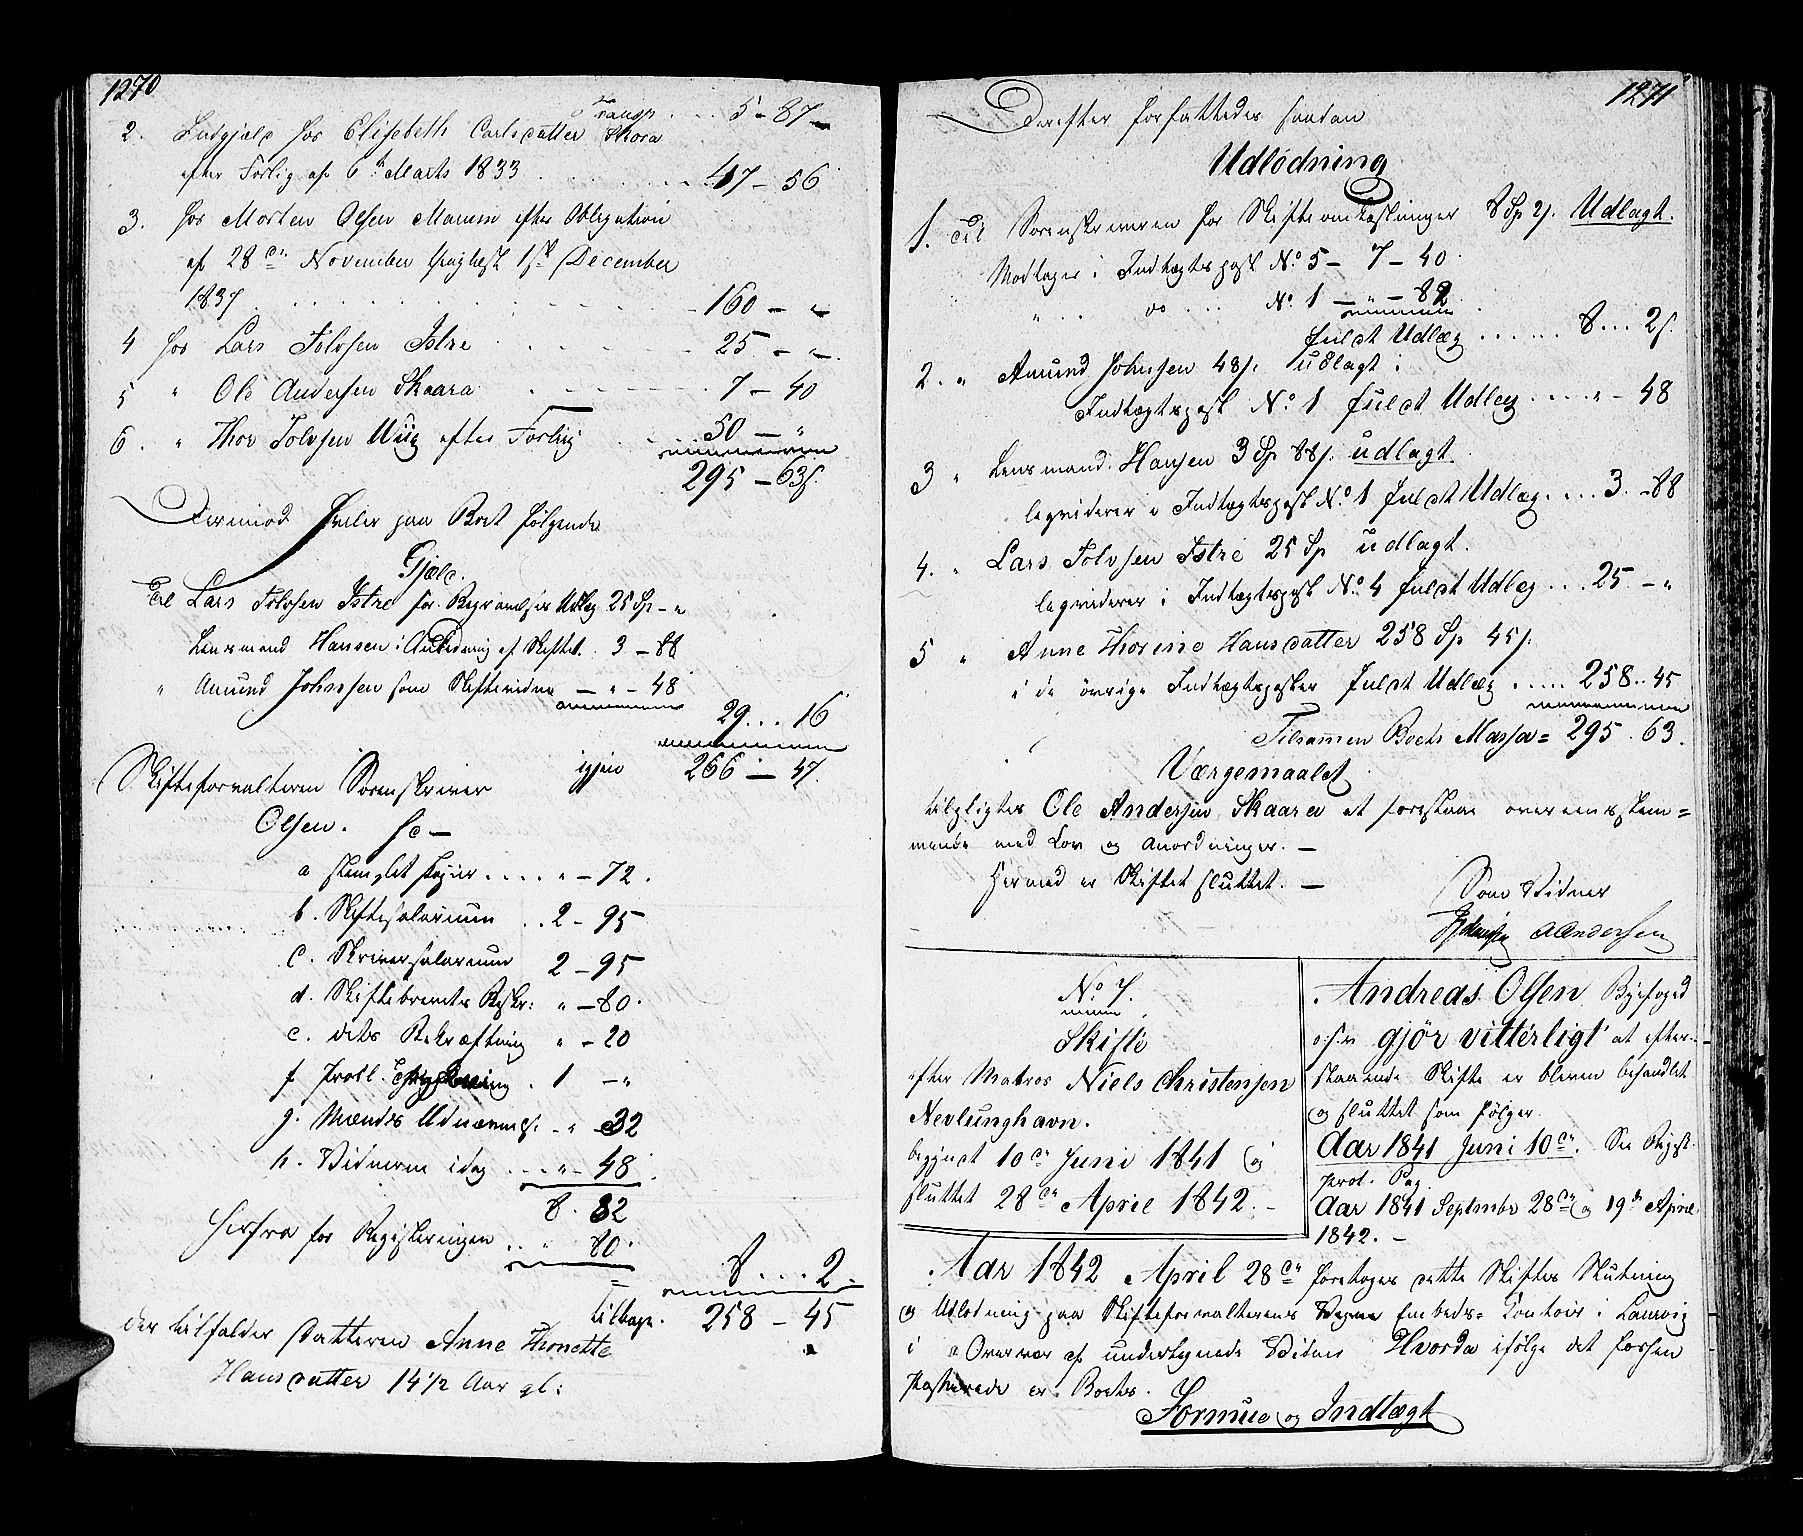 1270
Transp. . . . 5 - 87 -
2. Indgjæld hos Elisabeth Carlsdatter Skora
efter Forlig af 6te Marts 1833 . . . . . . 47 - 56
3. hos Morten Olsen Manum efter Obligation
af 28de November thinglæst 1ste December
1837 . . . . . . . 160 - "
4 hos Lars Tolvsen Istre . . . . 25 - "
5 " Ole Andersen Skaara . . . . 7 - 40
6. " Thor Tolvsen Wiig efter Forlig . . . 50 - "
295 - 63 s.
Derimod hviler paa Boet følgende
Gjæld.
Til Lars Tolvsen Istre for Begravelses Udlæg 25 Sp - "
Lensmand Hansen i Anledning af Skiftet. 3 - 88
" Amund Johnsen som Skiftevidne - " - 48
29 . . . 16
igjen 266 - 47.
Skifteforvalteren Sorenskriver
Olsen.
a stemplet Papir . . . . " - 72.
b. Skiftesalarium . . 2 - 95
c. Skriversalarium 2 - 95
d. Skiftebrevets Beskr: " - 80.
e. dets Bekræftning " - 20
f Protl. . 1 - "
g. Mænds Udnævnels. - " - 32
h. Vidnerne idag . . . " - 48.
8. 82
Herfra for Registeringen . . " 80.
8 . . . 2.
tilbage. 258 - 45
der tilfalder Datteren Anne Thonette
Hansdatter 14 1/2 Aar gl:
1271
Derefter forfattedes saadan
Udlodning
1. Til Sorenskriveren for Skifteomkostninger 8 Sp 2 s. Udlagt.
Modtager i Indtægtspost No 5 - 7 - 40
" . . do . . . No 1 - " - 82
fuldt Udlæg . . . . . . 8 . . . 2 s.
2. " Amund Johnsen 48 s. udlagt i
Indtægtspost No 1 fuldt Udlæg . . . . " - 48
3 " Lensmand Hansen 3 Sp 88 s. udlagt.
leqviderer i Indtægtspost No 1 fuldt Udlæg . . . . 3. - 88
4. " Lars Tolvsen Istre 25 Sp udlagt.
leqviderer i Indtægtspost No 4 fuldt Udlæg . . . 25 - "
5 " Anne Thorine Hansdatter 258 Sp 45 s.
i de øvrige Indtægtsposter fuldt Udlæg . . . . . 258 . . 45
Tilsammen Boets Massa = 295 . 63.
Værgemaalet
tilpligtes Ole Andersen Skaara at forestaae overeensstem=
mende med Lov og Anordninger. -
Hermed er Skiftet sluttet. -
Som Vidner
AAndersen
No 7.
Skifte
efter Matros Niels Christensen
Nevlunghavn.
begyndt 10de Juni 1841 og
sluttet 28de April 1842. -
Andreas Olsen Byefoged
o.s.v. gjör vitterligt at efter-
staaende Skifte er bleven behandlet
og sluttet som følger
Aar 1841 Juni 10de. See Regist.
prot. Pag.
Aar 1841 Septmbr 28de og 19de April
1842. -
Aar 1842 April 28de foretoges dette Skiftes Slutning
og Udlodning paa Skifteforvalterens Vegne Embeds= Contoir i Laurvig
i Overvær af undertegnede Vidner Hvorda ifølge det forhen
Passerede er Boets.
Formue og Indtægt